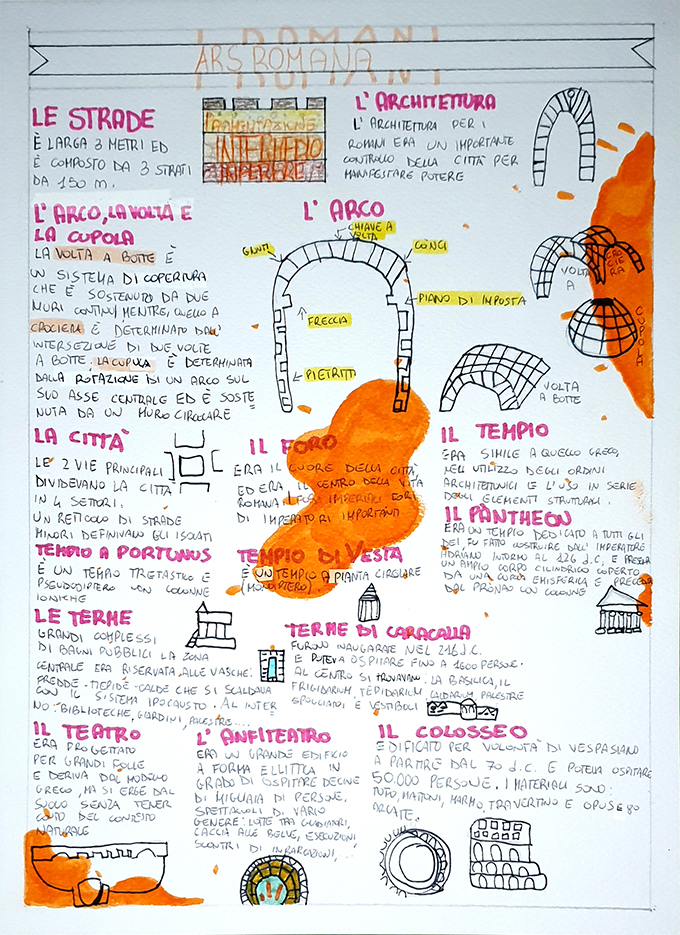 I ROMANI
ARS ROMANA
LE STRADE
È LARGA 3 METRI ED
È COMPOSTO DA 3 STRATI
DA 150 m.
PAVIMENTAZIONE
INTERMEDIO
L'ARCHITETTURA
L'ARCHITETTURA PER I
ROMANI ERA UN IMPORTANTE
CONTROLLO DELLA CITTÀ PER
MANIFESTARE POTERE
L'ARCO, LA VOLTA E
LA CUPOLA
LA VOLTA A BOTTE È
UN SISTEMA DI COPERTURA
CHE È SOSTENUTO DA DUE
MURI CONTINUI MENTRE, QUELLO A
CROCIERA È DETERMINATO DALL'
INTERSEZIONE DI DUE VOLTE
A BOTTE. LA CUPOLA È DETERMINATA
DALLA ROTAZIONE DI UN ARCO SUL
SUO ASSE CENTRALE ED È SOSTE=
NUTA DA UN MURO CIRCOLARE
L'ARCO
CHIAVE A
VOLTA
GIUNTI
CONCI
PIANO DI IMPOSTA
FRECCIA
PIEDRITTI
VOLTA
A
CROCIERA
CUPOLA
VOLTA
A BOTTE
LA CITTÀ
LE 2 VIE PRINCIPALI
DIVIDEVANO LA CITTÀ
IN 4 SETTORI.
UN RETICOLO DI STRADE
MINORI DEFINIVANO GLI ISOLATI
IL FORO
ERA IL CUORE DELLA CITTÀ,
ED ERA IL CENTRO DELLA VITA
ROMANA. I FORI IMPERIALI FORI
DI IMPERATORI IMPORTANTI
IL TEMPIO
ERA SIMILE A QUELLO GRECO,
NELL UTILIZZO DEGLI ORDINI
ARCHITETTONICI E L'USO IN SERIE
DEGLI ELEMENTI STRUTTURALI.
IL PANTHEON
ERA UN TEMPIO DEDICATO A TUTTI GLI
DEI. FU FATTO COSTRUIRE DALL'IMPERATORE
ADRIANO INTORNO AL 126 d.C, E PRESENTA
UN AMPIO CORPO CILINDRICO COPERTO
DA UNA CUPOLA EMISFERICA E PRECEDUTA
DAL PRONAO CON COLONNE
TEMPIO A PORTUNUS
È UN TEMPIO TRETASTILO E
PSEUDODIPTERO CON COLONNE
IONICHE
TEMPIO DI VESTA
È UN TEMPIO A PIANTA CIRCOLARE
(MONOPTERO).
LE TERME
GRANDI COMPLESSI
DI BAGNI PUBBLICI LA ZONA
CENTRALE ERA RISERVATA ALLE VASCHE:
FREDDE-TIEPIDE-CALDE CHE SI SCALDAVA
CON IL SISTEMA IPOCAUSTO. AL INTER
NO: BIBLIOTECHE, GIARDINI, PALESTRE....
TERME DI CARACALLA
FURONO INAUGURATE NEL 216 d.C.
E POTEVA OSPITARE FINO A 1600 PERSONE.
AL CENTRO SI TROVAVANO: LA BASILICA, IL
FRIGIDARIUM, TEPIDARIUM, CALDARIUM, PALESTRE
SPOGLIATOI E VESTIBOLI
IL TEATRO
ERA PROGETTATO
PER GRANDI FOLLE
E DERIVA DAL MODELLO
GRECO, MA SI ERGE DAL
SUOLO SENZA TENER
CONTO DEL CONTESTO
NATURALE
L'ANFITEATRO
ERA UN GRANDE EDIFICIO
A FORMA ELLITTICA IN
GRADO DI OSPITARE DECINE
DI MIGLIAIA DI PERSONE.
SPETTACOLI DI VARIO
GENERE: LOTTE TRA GLADIATORI,
CACCIA ALLE BELVE, ESECUZIONI
SCONTRI DI IMBARCAZIONI,...
IL COLOSSEO
EDIFICATO PER VOLONTÀ DI VESPASIANO
A PARTIRE DAL 70 d.C. E POTEVA OSPITARE
50.000 PERSONE. I MATERIALI SONO:
TUFO, MATTONI, MARMO, TRAVERTINO E OPUS E 80
ARCATE.